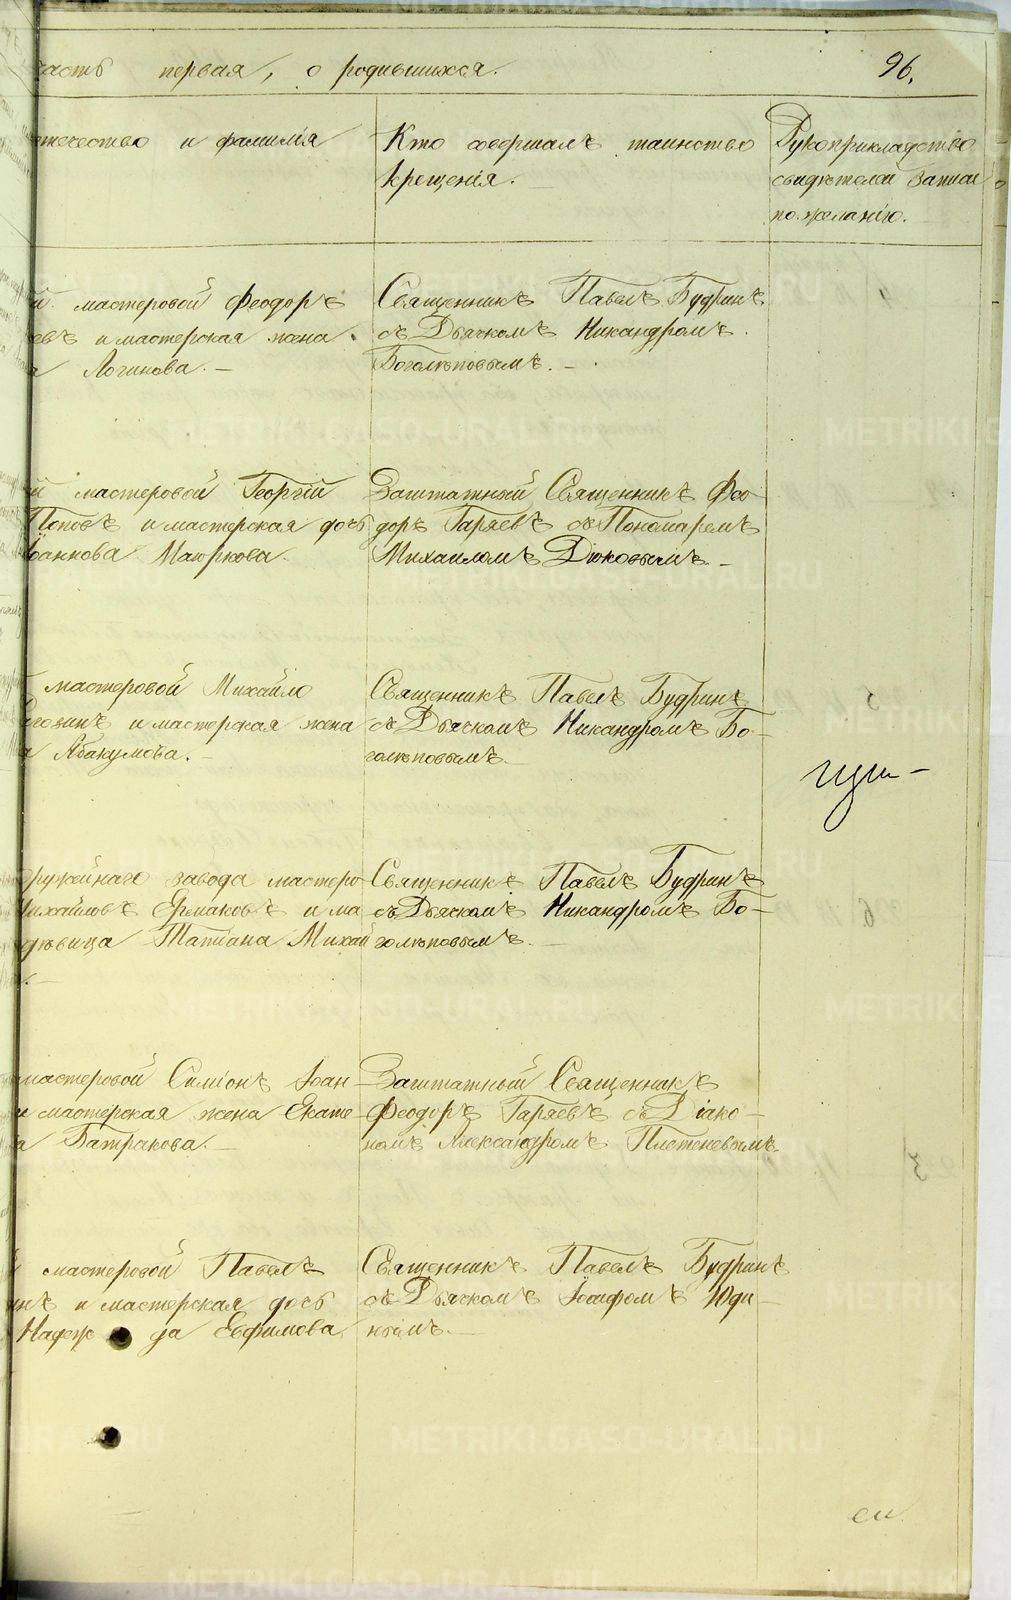 часть первая, о родившихся.
96.
отечество и фамилія
Кто совершалъ таинство
крещенія.
Рукоприкладство
свидѣтелей записи
по желанію.
й мастеровой Феодоръ
евъ и мастерская жена
а Логинова. —
Священникъ Павелъ Будринъ
съ Дьячкомъ Никандромъ
Боголѣповымъ. —
й мастеровой Георгій
Поповъ и мастерская дочь
Іоаннова Маюркова.
Заштатный Священникъ Фео-
доръ Гаряевъ съ Пономаремъ
Михаиломъ Дюковымъ. —
мастеровой Михайло
и мастерская жена
а Абакумова. —
Священникъ Павелъ Будринъ
съ Дьячкомъ Никандромъ Бо-
голѣповымъ. —
оружейнаго завода мастеро
Михайловъ Ярмаковъ и ма
дѣвица Татіана Михай
Священникъ Павелъ Будринъ
съ Дьячкомъ Никандромъ Бо-
голѣповымъ. —
мастеровой Симіонъ Іоан-
и мастерская жена Екате-
а Батракова. —
Заштатный Священникъ
Феодоръ Гаряевъ съ Діако-
номъ Александромъ Плетеневымъ.
й мастеровой Павелъ
инъ и мастерская дочь
Надеж да Евфимова.
Священникъ Павелъ Будринъ
съ Дьячкомъ Іосифомъ Юди-
нымъ. —
METRIKI.GASO-URAL.RU